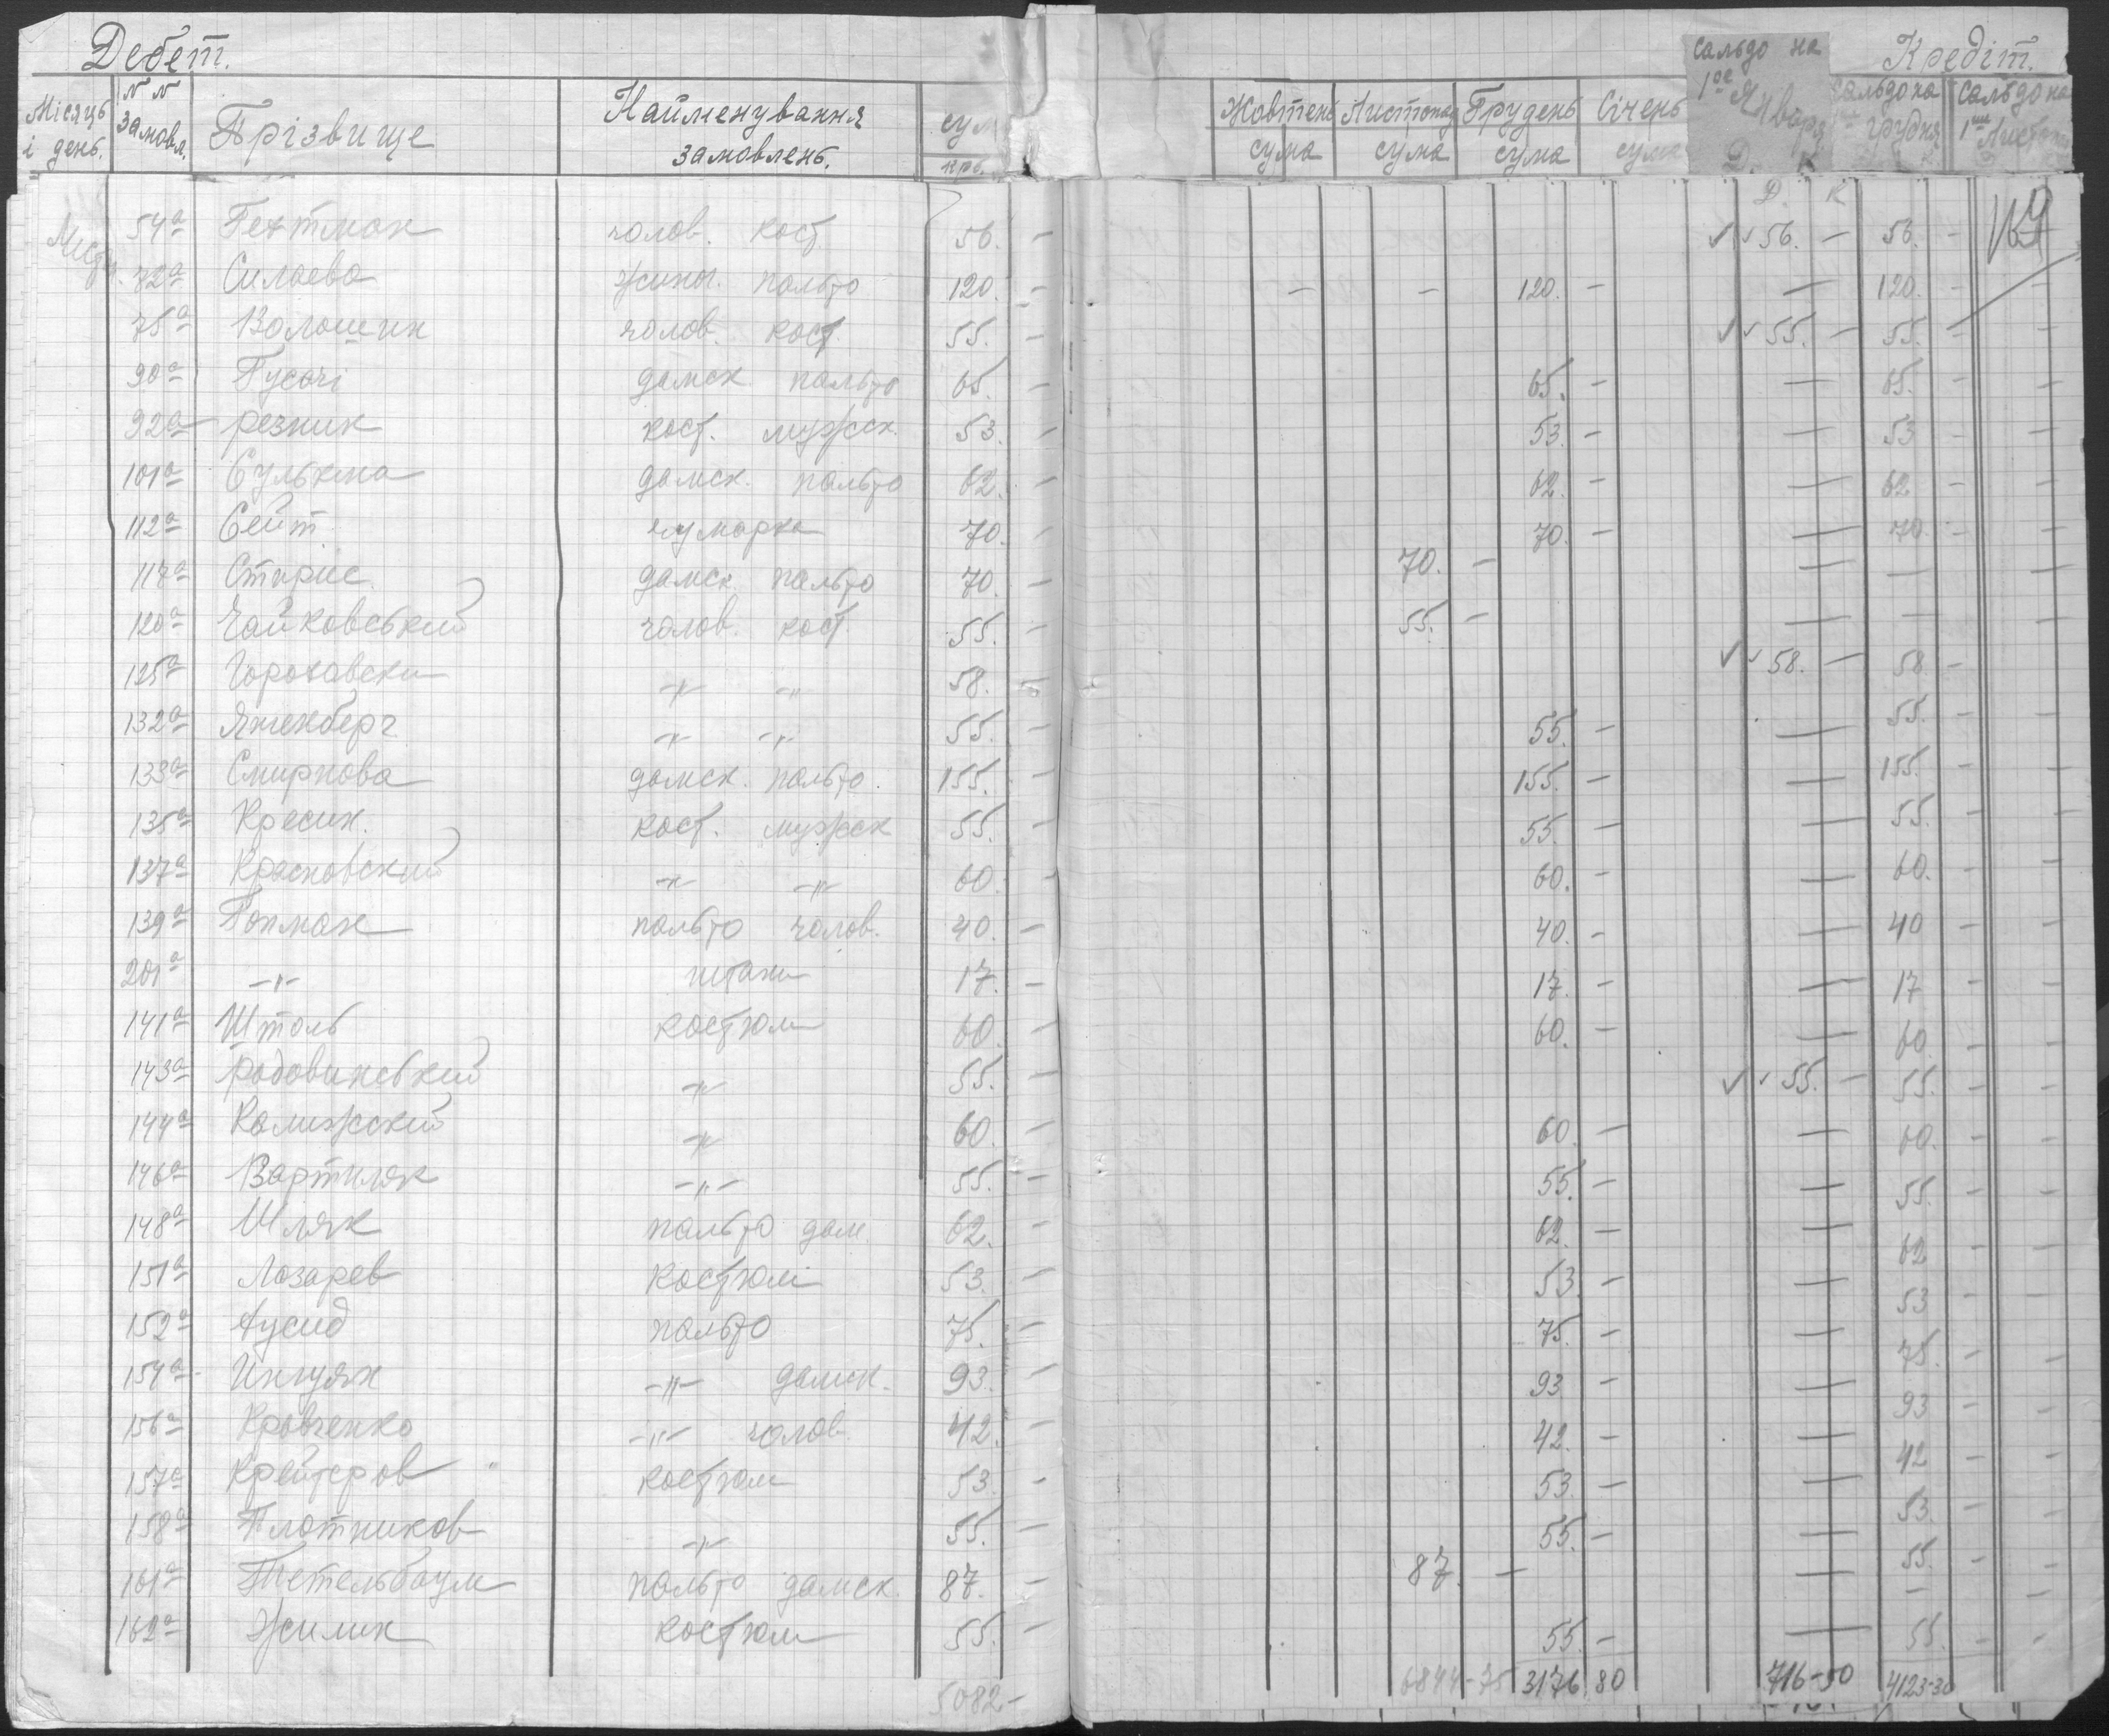 Дебет. Кредіт.
Місяць і день. №№ замовл. Прізвище Найменування замовлень. сум крб. Жовтень сума Листопад сума Грудень сума Січень сума Сальдо на 1ое Января Д. К Сальдо на грудня Сальдо на 1ше Листоп
Д. К
54а Гехтман чолов. кост 56. – 56. – 56. – 169
72а Силаева жиноч. пальто 120. – – – 120. – — 120. – –
75а Волошин чолов. кост. 55. – 55. – 55. – –
90а Гусачі дамск. пальто 65. – 65. – — 65. – –
92а Резник кост. мужск. 53. – 53. – — 53 – –
101а дамск. пальто 62. – 62. – — 62 – –
112а Сейт чумарка 70. – 70. – — 70. – –
117а дамск. пальто 70. – 70. – — — –
120а Чайковський чолов. кост. 55. – 55. – — — –
125а -"- -"- 58. – 58. – 58 –
132а -"- -"- 55. – 55. – — 55. – –
133а Смирнова дамск. пальто. 155. – 155. – — 155. – –
135а Кресин. кост. мужск 55. – 55. – — 55. – –
137а Красновский -"- -"- 60. – 60. – — 60. – –
139а пальто чолов. 40. – 40. – — 40 – –
201а -"- штани 17. – 17. – — 17 – –
141а Штоль костюм 60. – 60. – — 60 – –
143а Радовинський -"- 55. – 55. – 55. – –
144а -"- 60. – 60. – — 60. – –
146а Вартиляк -"- 55. – 55. – — 55. – –
148а Шляк пальто дам. 62. – 62. – — 62 – –
151а Лазарев костюм 53. – 53 – — 53 – –
152а Аусид пальто 75. – 75. – — 75. –
154а -"- дамск. 93. – 93 – — 93 – –
156а Кравченко -"- чолов. 42. – 42. – — 42 – –
157а Крейтеров костюм 53. – 53. – — 53. – –
158а Плотников -"- 55. – 55. – — 55. – –
161а Тетельбаум пальто дамск. 87. – 87. – — – –
162а Жилик костюм 55. – 55. – — 55. – –
5082- 6844-75 3176 80 716-50 4123-30